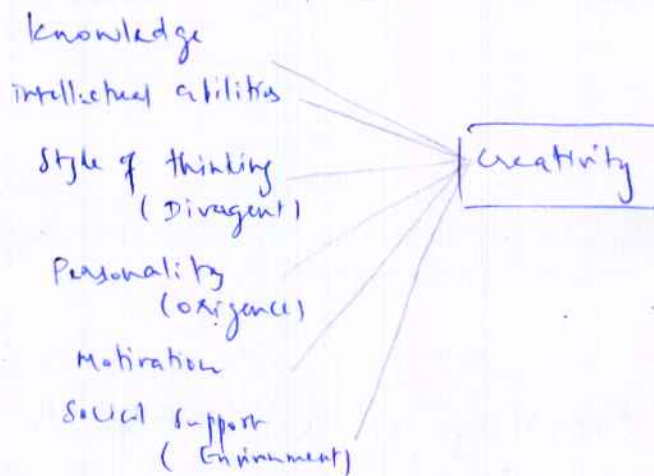 knowledge
intellectual abilities
Style of thinking
( Divagent )
Personality
( origence )
Motivation
Social Support
( Environment )
Creativity